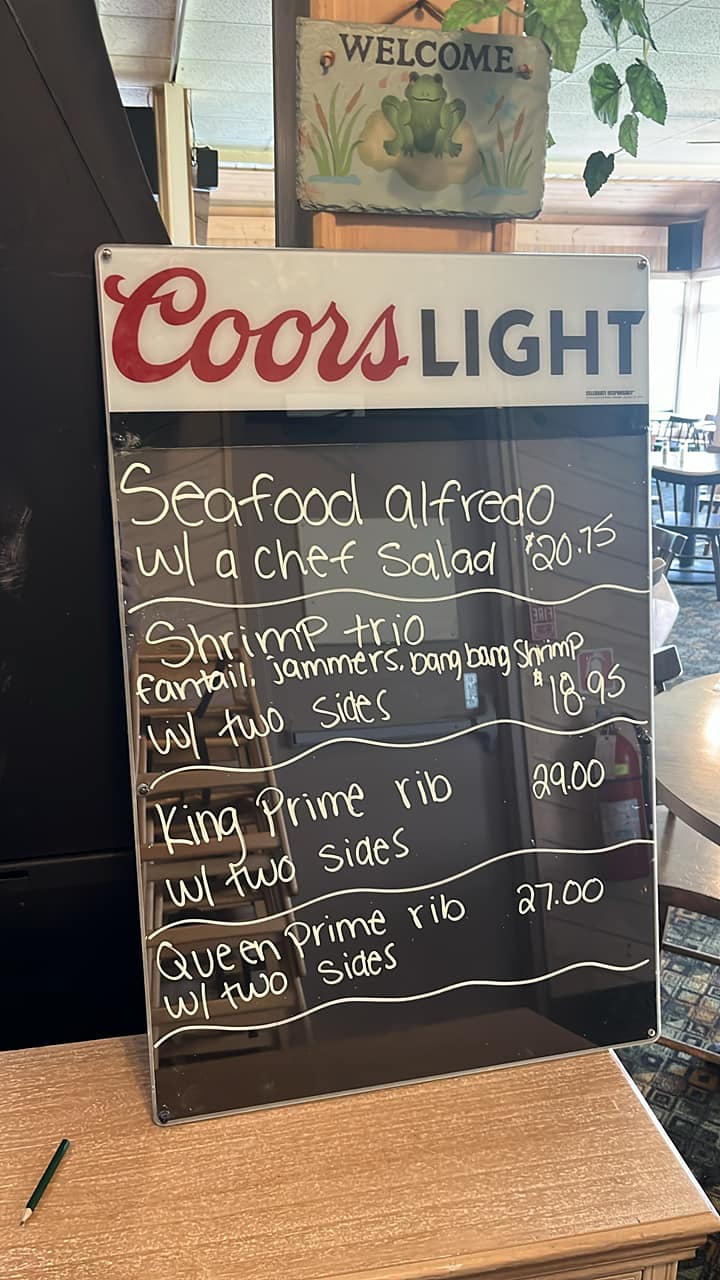 WELCOME
Coors LIGHT
Seafood alfredo
w/ a chef Salad $20.75
Shrimp trio
fantail, jammers, bang bang Shrimp
w/ two sides $18.95
King Prime rib 29.00
w/ two sides
Queen Prime rib 27.00
w/ two sides
FIRE